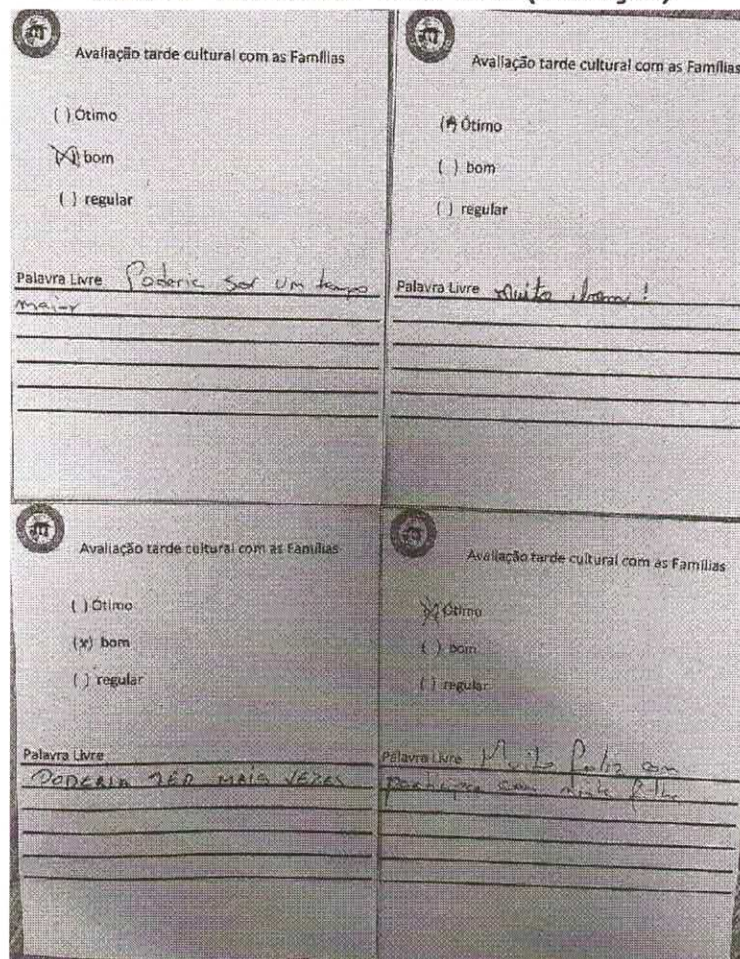 Avaliação tarde cultural com as Famílias
( ) Ótimo
(X) bom
( ) regular
Palavra Livre Poderia ser um tempo
maior
Avaliação tarde cultural com as Famílias
(X) Ótimo
( ) bom
( ) regular
Palavra Livre Muito
Avaliação tarde cultural com as Famílias
( ) Ótimo
(x) bom
( ) regular
Palavra Livre
PODERIA TER MAIS VEZES
Avaliação tarde cultural com as Famílias
(X) Ótimo
( ) bom
( ) regular
Palavra Livre Muito Feliz em
participar com